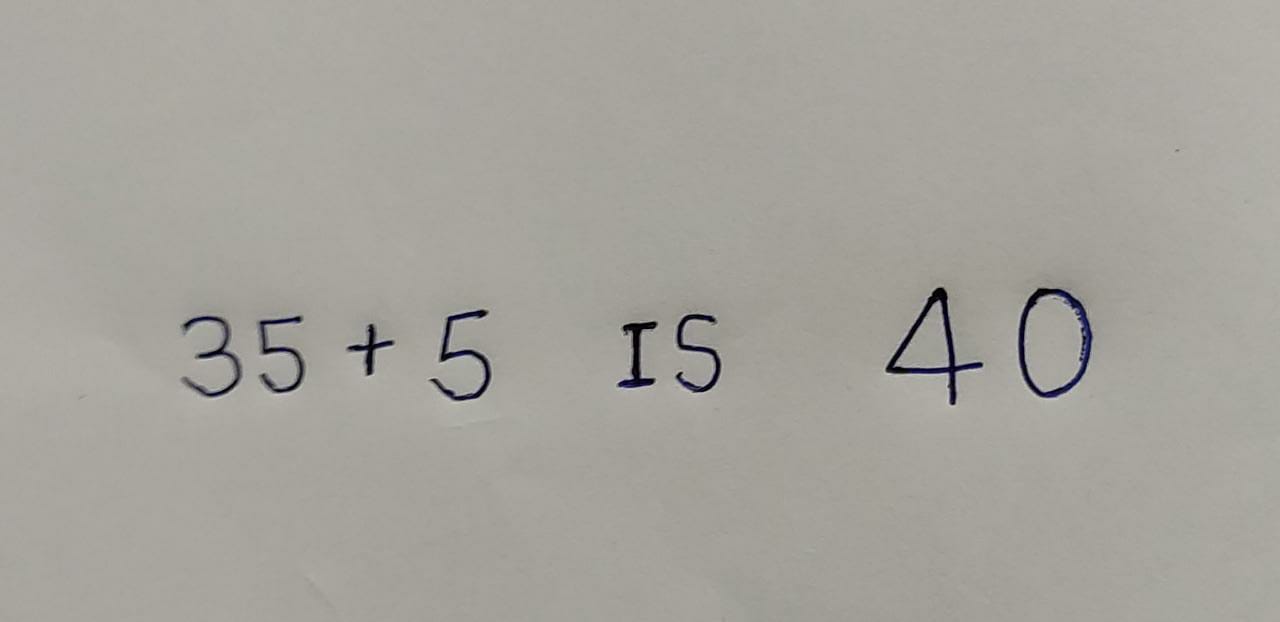 35+5 IS 40